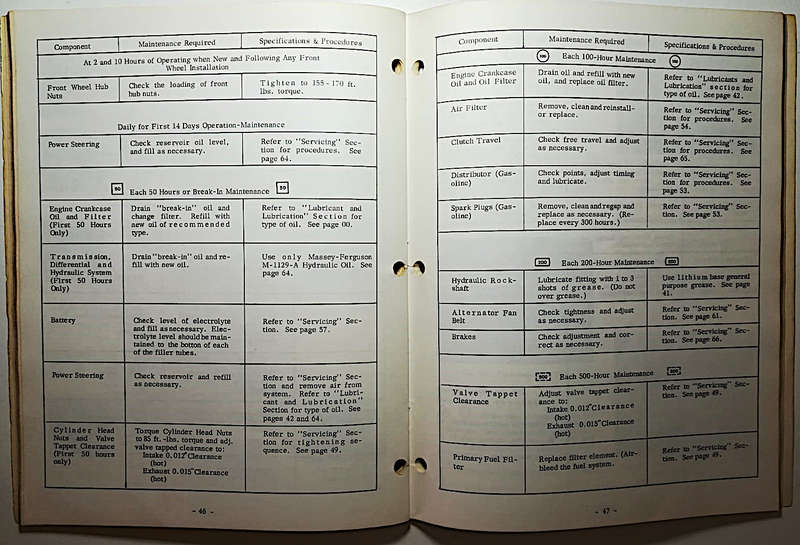 Component Maintenance Required Specifications & Procedures
At 2 and 10 Hours of Operating when New and Following Any Front
Wheel Installation
Front Wheel Hub
Nuts
Check the loading of front
hub nuts.
Tighten to 155-170 ft.
lbs. torque.
Daily for First 14 Days Operation-Maintenance
Power Steering
Check reservoir oil level,
and fill as necessary.
Refer to "Servicing" Sec-
tion for procedures. See
page 64.
50 Each 50 Hours or Break-In Maintenance 50
Engine Crankcase
Oil and Filter
(First 50 Hours
Only)
Drain "break-in" oil and
change filter. Refill with
new oil of recommended
type.
Refer to "Lubricant and
Lubrication" Section for
type of oil. See page 00.
Transmission,
Differential and
Hydraulic System
(First 50 Hours
Only)
Drain "break-in" oil and re-
fill with new oil.
Use only Massey-Ferguson
M-1129-A Hydraulic Oil. See
page 64.
Battery
Check level of electrolyte
and fill as necessary. Elec-
trolyte level should be main-
tained to the botton of each
of the filler tubes.
Refer to "Servicing" Sec-
tion. See page 57.
Power Steering
Check reservoir and refill
as necessary.
Refer to "Servicing" Sec-
tion and remove air from
system. Refer to "Lubri-
cant and Lubrication"
Section for type of oil. See
pages 42 and 64.
Cylinder Head
Nuts and Valve
Tappet Clearance
(First 50 hours
only)
Torque Cylinder Head Nuts
to 85 ft. -lbs. torque and adj.
valve tappet clearance to:
Intake 0.012" Clearance
(hot)
Exhaust 0.015" Clearance
(hot)
Refer to "Servicing" Sec-
tion for tightening se-
quence. See page 49.
- 46 -
Component Maintenance Required Specifications & Procedures
100 Each 100-Hour Maintenance 100
Engine Crankcase
Oil and Oil Filter
Drain oil and refill with new
oil, and replace oil filter.
Refer to "Lubricants and
Lubrication" section for
type of oil. See page 42.
Air Filter
Remove, clean and reinstall-
or replace.
Refer to "Servicing" Sec-
tion for procedures. See
page 54.
Clutch Travel
Check free travel and adjust
as necessary.
Refer to "Servicing" Sec-
tion for procedures. See
page 65.
Distributor (Gas-
oline)
Check points, adjust timing
and lubricate.
Refer to "Servicing" Sec-
tion for procedures. See
page 53.
Spark Plugs (Gas-
oline)
Remove, clean and regap and
replace as necessary. (Re-
place every 300 hours.)
Refer to "Servicing" Sec-
tion. See page 53.
200 Each 200-Hour Maintenance 200
Hydraulic Rock-
shaft
Lubricate fitting with 1 to 3
shots of grease. (Do not
over grease.)
Use lithium base general
purpose grease. See page
41.
Alternator Fan
Belt
Check tightness and adjust
as necessary.
Refer to "Servicing" Sec-
tion. See page 61.
Brakes
Check adjustment and cor-
rect as necessary.
Refer to "Servicing" Sec-
tion. See page 66.
500 Each 500-Hour Maintenance 500
Valve Tappet
Clearance
Adjust valve tappet clear-
ance to:
Intake 0.012" Clearance
(hot)
Exhaust 0.015" Clearance
(hot)
Refer to "Servicing" Sec-
tion. See page 49.
Primary Fuel Fil-
ter
Replace filter element. (Air-
bleed the fuel system.
Refer to "Servicing" Sec-
tion. See page 49.
- 47 -